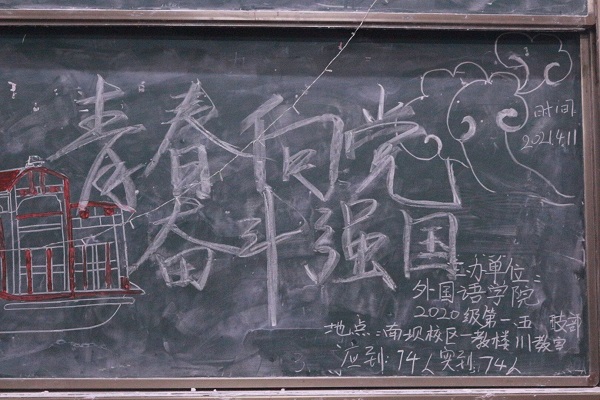 青春向党
奋斗强国
时间
2021.4.11
主办单位:
外国语学院
2020级第一五
地点:南坝校区一教楼111教室
应到:74人 实到:74人